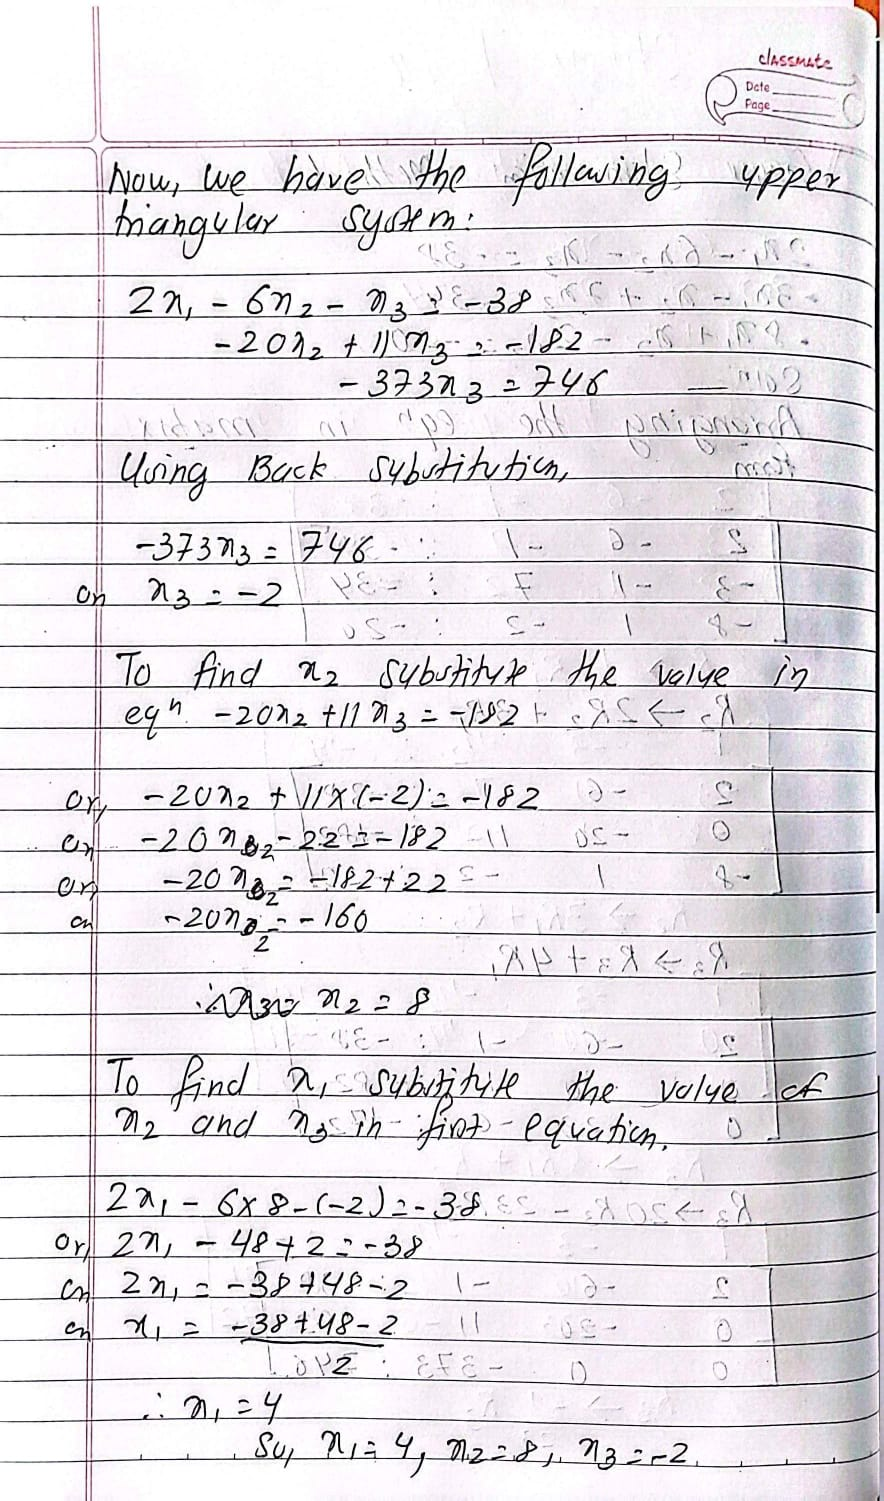 classmate
Date
Page
Now, we have the following upper
triangular system:
2x₁ - 6x₂ - x₃ = -38
-20x₂ + 11x₃ = -182
-373x₃ = 746
Using Back substitution,
-373x₃ = 746
or x₃ = -2
To find x₂ substitute the value in
eqⁿ -20x₂ + 11x₃ = -182
or, -20x₂ + 11×(-2) = -182
or, -20x₂ - 22 = -182
or, -20x₂ = -182 + 22
or -20x₂ = -160
∴ x₂ = 8
To find x₁ substitute the value of
x₂ and x₃ in first equation.
2x₁ - 6×8 - (-2) = -38
or, 2x₁ - 48 + 2 = -38
or, 2x₁ = -38 + 48 - 2
or x₁ = -38 + 48 - 2
2
∴ x₁ = 4
So, x₁ = 4, x₂ = 8, x₃ = -2